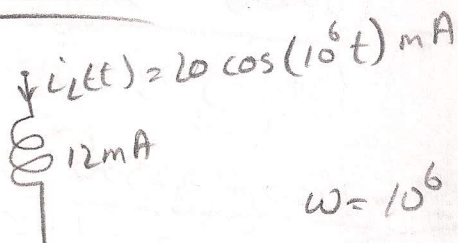 i_L(t) = 20 cos(10^6 t) mA
12mA
ω = 10^6